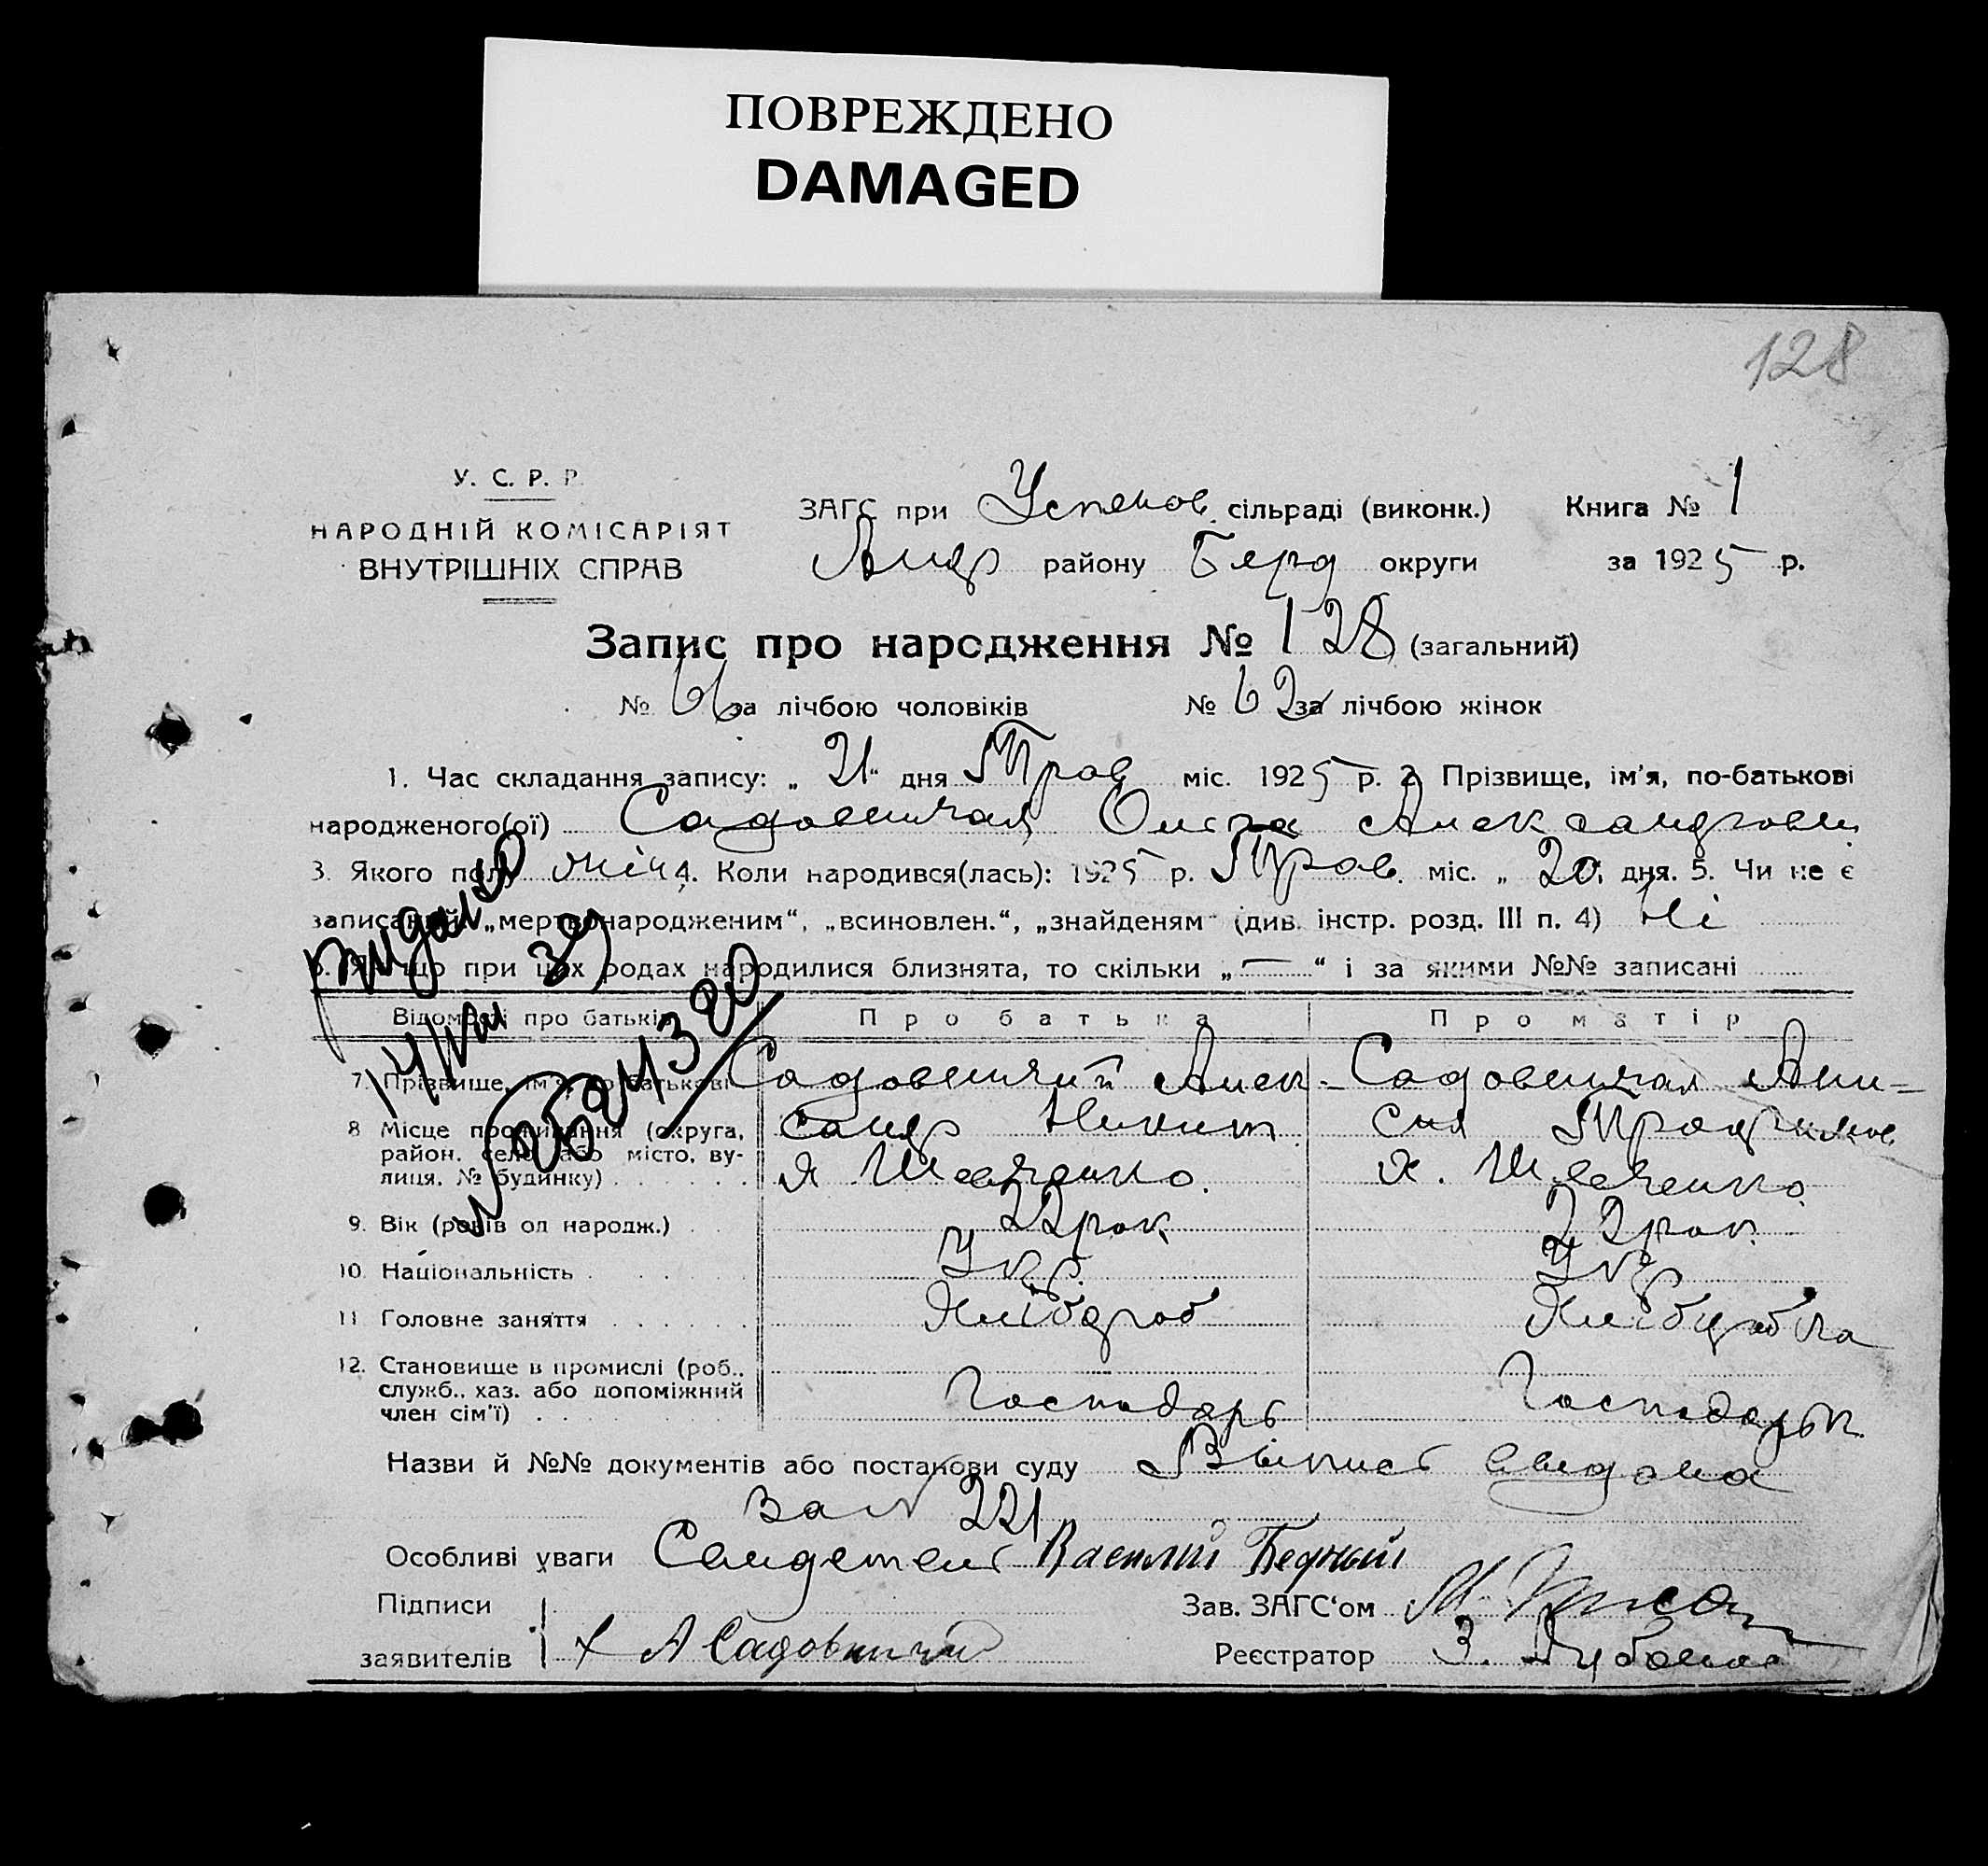 ПОВРЕЖДЕНО
DAMAGED
128
У. С. Р. Р.
НАРОДНІЙ КОМІСАРІЯТ
ВНУТРІШНІХ СПРАВ
ЗАГС при Успенов. сільраді (виконк.) Книга № 1
району Берд округи за 1925 р.
Запис про народження № 128 (загальний)
№ 66 за лічбою чоловіків № 62 за лічбою жінок
1. Час складання запису: „ 21 “ дня Трав міс. 1925 р. 2. Прізвище, ім'я, по-батькові
народженого(ої) Садовничая Ольга Александровн
3. Якого полу жіч 4. Коли народився(лась): 1925 р. Трав. міс. „ 20 “ дня. 5. Чи не є
записаний „мертвонародженим“, „всиновлен.“, „знайденям“ (див. інстр. розд. III п. 4) Ні
6. Якщо при цих родах народилися близнята, то скільки „ — “ і за якими №№ записані
Відомості про батьків Про батька Про матір
7. Прізвище, ім'я, по батькові Садовничий Алек- Садовничая Ани-
8 Місце проживання (округа, район, село або місто, вулиця, № будинку) сандр Никит. сия
х Шевченко. х. Шевченко
9. Вік (років од народж.) 22 рок 22 рок.
10. Національність Укр. Укр
11. Головне заняття Хлібороб Хліборобка
12. Становище в промислі (роб., служб., хаз. або допоміжний член сім'ї) Господарь Господарьк
Назви й №№ документів або постанови суду Выпись
за № 221
Особливі уваги Василий Бедный
Підписи Зав. ЗАГС'ом М.
заявителів А Садовничий Реєстратор З.